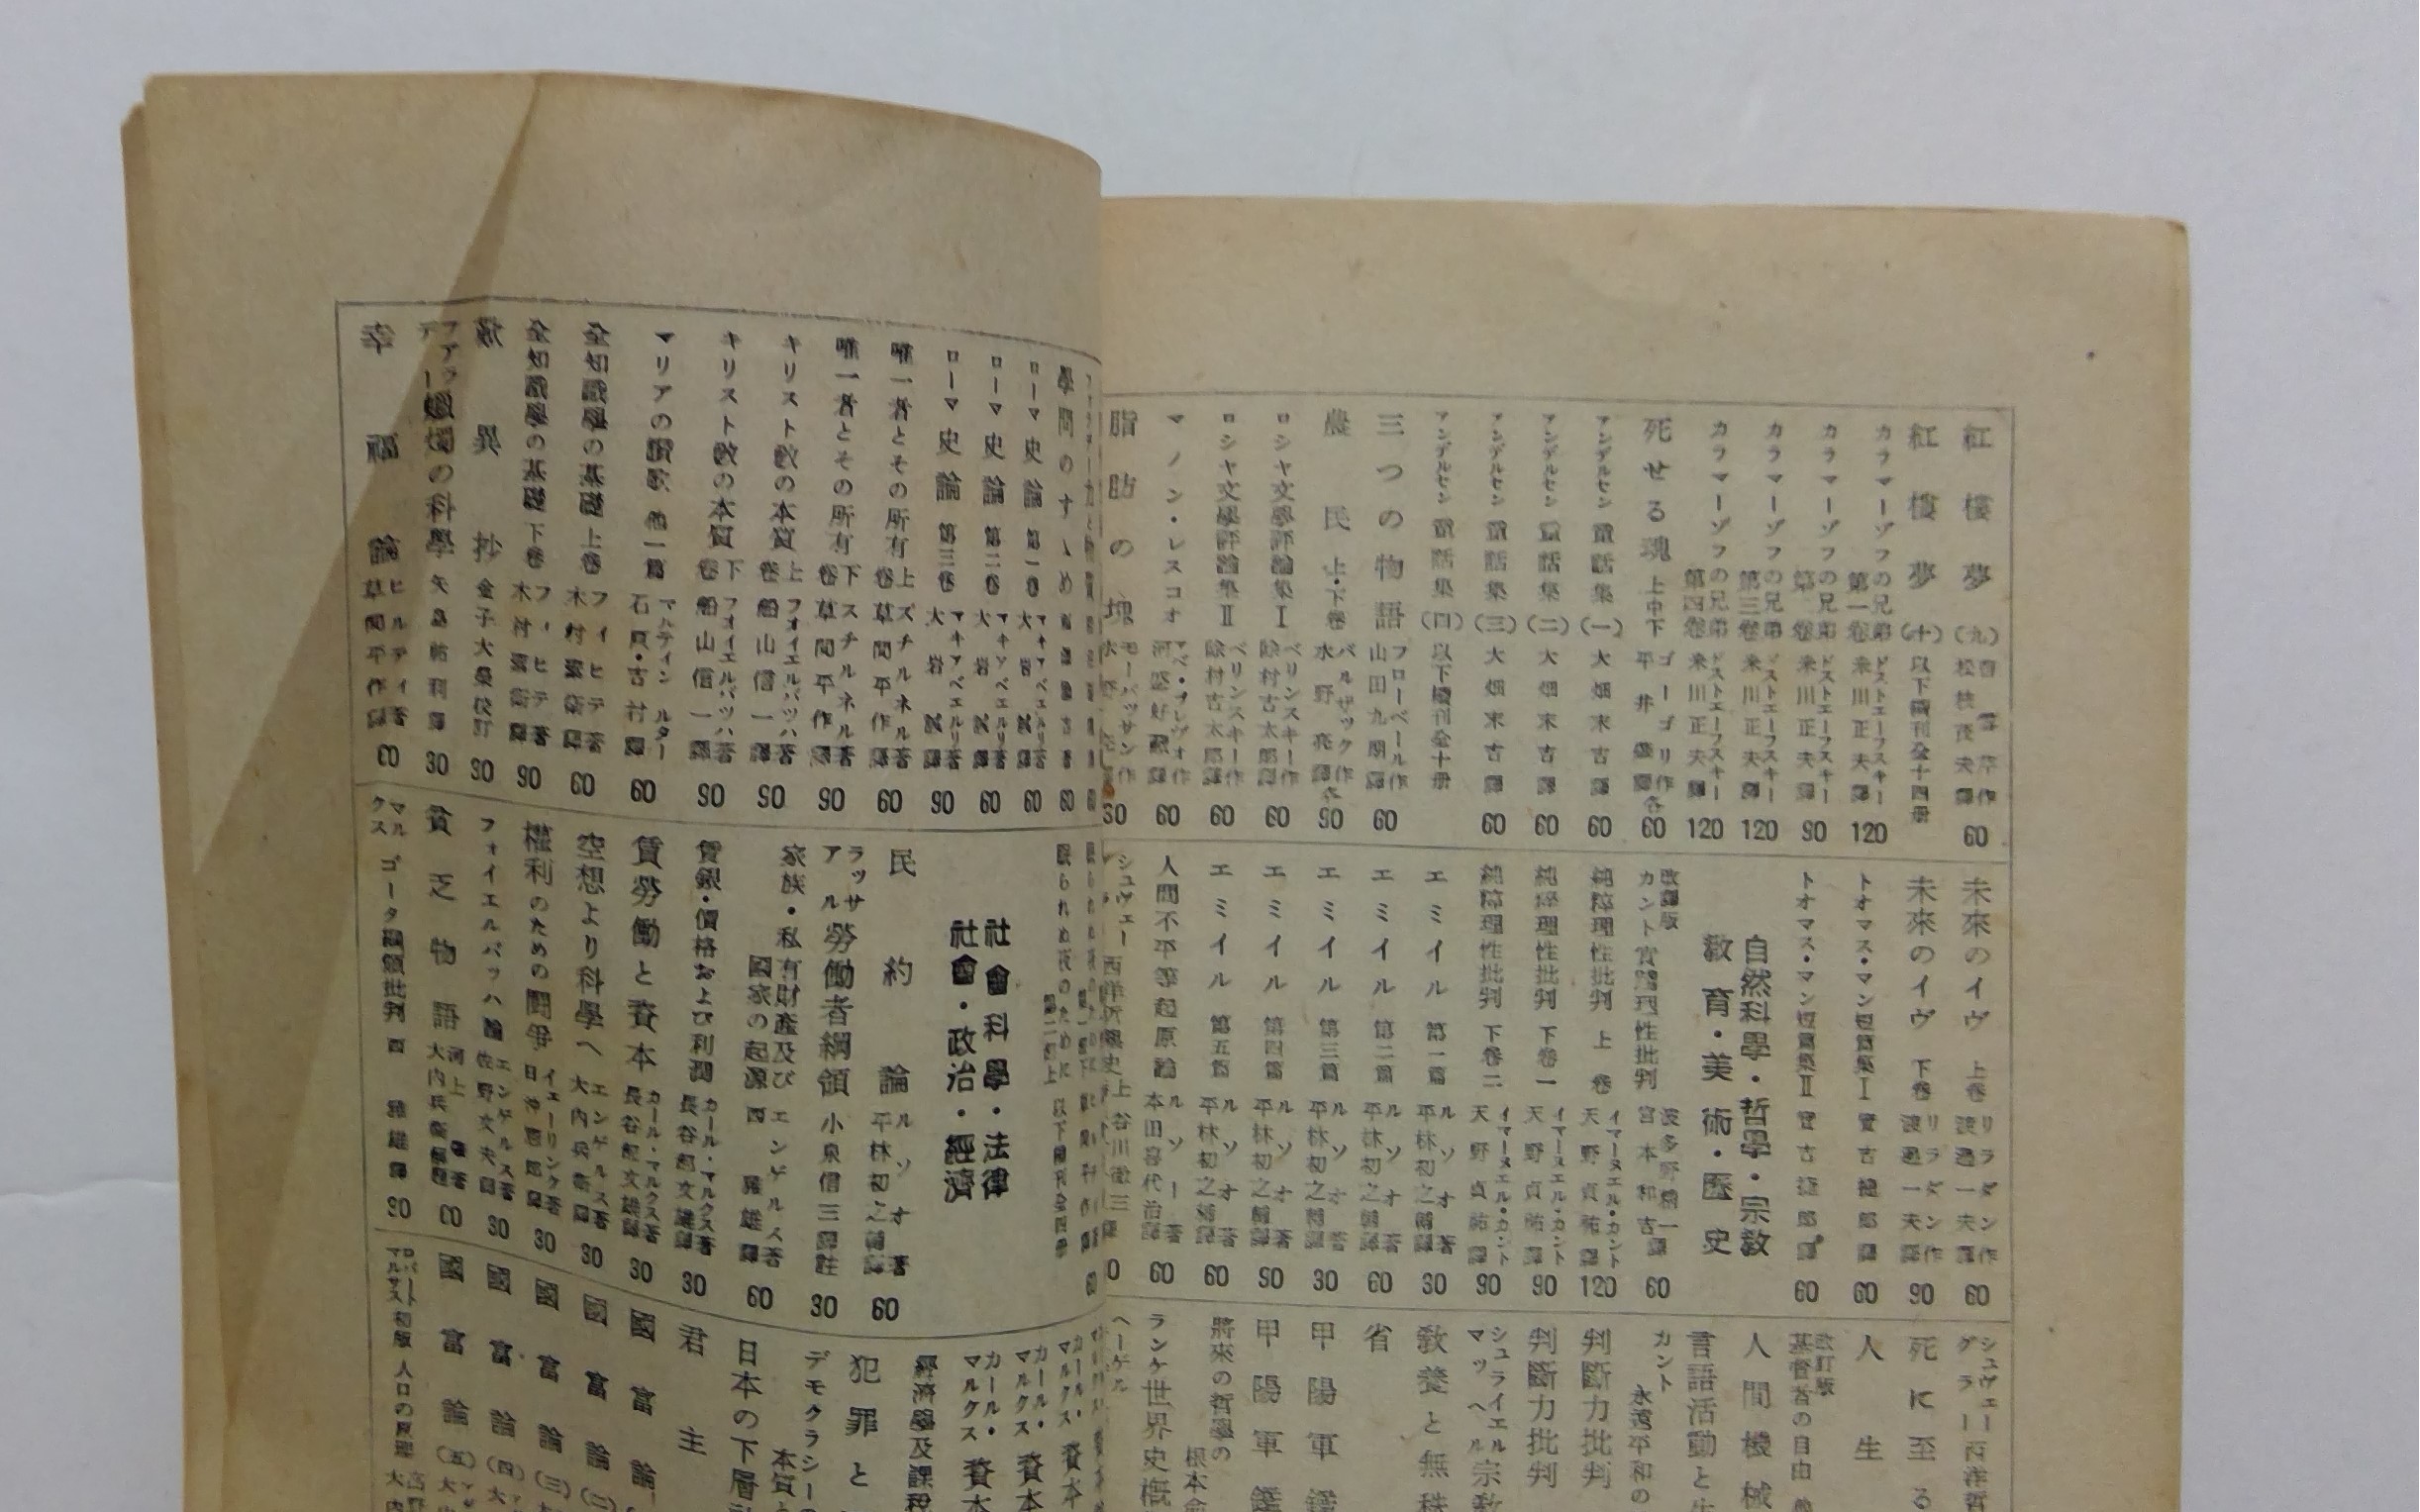 紅樓夢(九) 曹雪芹作 松枝茂夫譯 60
紅樓夢(十) 以下續刊全十四册
カラマーゾフの兄弟 第一卷 ドストエーフスキー 米川正夫譯 120
カラマーゾフの兄弟 第 卷 ドストエーフスキー 米川正夫譯 90
カラマーゾフの兄弟 第三卷 ドストエーフスキー 米川正夫譯 120
カラマーゾフの兄弟 第四卷 ドストエーフスキー 米川正夫譯 120
死せる魂 上中下 ゴーゴリ作 平井 譯 各60
アンデルセン童話集(一) 大畑末吉譯 60
アンデルセン童話集(二) 大畑末吉譯 60
アンデルセン童話集(三) 大畑末吉譯 60
アンデルセン童話集(四) 以下續刊全十册
三つの物語 フローベール作 山田九朗譯 60
農民 上・下卷 バルザック作 水野亮譯 各90
ロシヤ文學評論集Ⅰ ベリンスキー作 除村吉太郎譯 60
ロシヤ文學評論集Ⅱ ベリンスキー作 除村吉太郎譯 60
マノン・レスコオ アベ・プレヴォ作 河盛好藏譯 60
脂肪の塊 モーパッサン作 水野亮
未來のイヴ 上卷 リラダン作 渡邊一夫譯 60
未來のイヴ 下卷 リラダン作 渡邊一夫譯 90
トオマス・マン短篇集Ⅰ 實吉捷郎譯 60
トオマス・マン短篇集Ⅱ 實吉捷郎譯 60
自然科學・哲學・宗教
教育・美術・歴史
改譯版 カント實踐理性批判 波多野精一 宮本和吉譯 60
純粹理性批判 上卷 イマーヌエル・カント 天野貞祐譯 120
純粹理性批判 下卷一 イマーヌエル・カント 天野貞祐譯 90
純粹理性批判 下卷二 イマーヌエル・カント 天野貞祐譯 90
エミイル 第一篇 ルソオ著 平林初之輔譯 30
エミイル 第二篇 ルソオ著 平林初之輔譯 60
エミイル 第三篇 ルソオ著 平林初之輔譯 30
エミイル 第四篇 ルソオ著 平林初之輔譯 90
エミイル 第五篇 ルソオ著 平林初之輔譯 60
人間不平等起原論 ルソー著 本田喜代治譯 60
シュヴェー 西洋哲學史 上 谷川徹三
シュヴェーグラー 西洋哲
死に至る
人生
改訂版 基督者の自由
人間機械
言語活動と生
カント 永遠平和の
判斷力批判
判斷力批判
シュライエルマッヘル宗教
教養と無秩
省
甲陽軍鑑
甲陽軍鑑
將來の哲學の根本命
ランケ世界史概
ヘーゲル
學問のすゝめ 60
ローマ史論 第一卷 マキァベェルリ著 大岩誠譯 60
ローマ史論 第二卷 マキァベェルリ著 大岩誠譯 60
ローマ史論 第三卷 マキァベェルリ著 大岩誠譯 90
唯一者とその所有 上卷 スチルネル著 草間平作譯 60
唯一者とその所有 下卷 スチルネル著 草間平作譯 90
キリスト教の本質 上卷 フォイエルバッハ著 船山信一譯 90
キリスト教の本質 下卷 フォイエルバッハ著 船山信一譯 90
マリアの讚歌 他一篇 マルティン ルター 石原・吉村譯 60
全知識學の基礎 上卷 フィヒテ著 木村素衞譯 60
全知識學の基礎 下卷 フィヒテ著 木村素衞譯 90
歎異抄 金子大榮校訂 30
ファラデー 蠟燭の科學 矢島祐利譯 30
幸福論 ヒルティ著 草間平作譯 60
眠られぬ夜のために 以下續刊全四册
社會科學・法律
社會・政治・經濟
民約論 ルソオ著 平林初之輔譯 60
ラッサアル 勞働者綱領 小泉信三譯註 30
家族・私有財產及び國家の起源 エンゲルス著 西雅雄譯 60
賃銀・價格および利潤 カール・マルクス著 長谷部文雄譯 30
賃勞働と資本 カール・マルクス著 長谷部文雄譯 30
空想より科學へ エンゲルス著 大内兵衞譯 30
權利のための闘爭 イェーリンク著 日沖憲郎譯 30
フォイエルバッハ論 エンゲルス著 佐野文夫譯 30
貧乏物語 河上肇著 大内兵衞解題 60
マルクス ゴータ綱領批判 西雅雄譯 30
カール・マルクス 資本
カール・マルクス 資本
カール・マルクス 資本
經濟學及課税
犯罪と
デモクラシーの本質と
日本の下層
君主
國富論
國富論(二)
國富論(三)
國富論(四)
國富論(五)
ロバート マルサス 初版 人口の原理 高野 大内